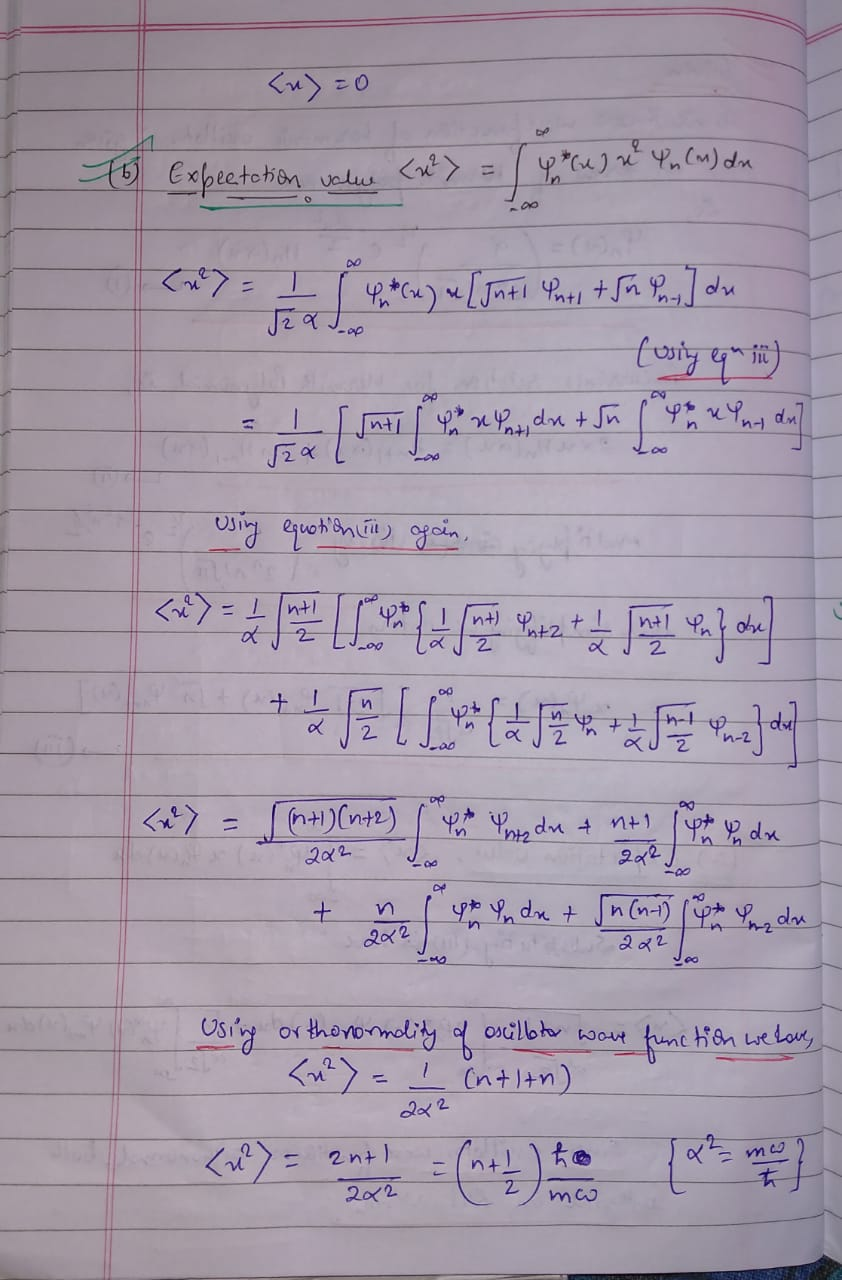 <x> = 0
(b) Expectation value <x²> = ∫_{-∞}^{∞} φₙ*(x) x² φₙ(x) dx
<x²> = 1/(√2 α) ∫_{-∞}^{∞} φₙ*(x) x [√n+1 φₙ₊₁ + √n φₙ₋₁] dx
(Using eqn iii)
= 1/(√2 α) [√n+1 ∫_{-∞}^{∞} φₙ* x φₙ₊₁ dx + √n ∫_{-∞}^{∞} φₙ* x φₙ₋₁ dx]
Using equation (iii) again,
<x²> = 1/α √((n+1)/2) [∫_{-∞}^{∞} φₙ* {1/α √((n+1)/2) φₙ₊₂ + 1/α √((n+1)/2) φₙ} dx]
+ 1/α √(n/2) [∫_{-∞}^{∞} φₙ* {1/α √(n/2) φₙ + 1/α √((n-1)/2) φₙ₋₂} dx]
<x²> = √((n+1)(n+2))/2α² ∫_{-∞}^{∞} φₙ* φₙ₊₂ dx + (n+1)/2α² ∫_{-∞}^{∞} φₙ* φₙ dx
+ n/2α² ∫_{-∞}^{∞} φₙ* φₙ dx + √(n(n-1))/2α² ∫_{-∞}^{∞} φₙ* φₙ₋₂ dx
Using orthonormality of oscillator wave function we have,
<x²> = 1/2α² (n+1+n)
<x²> = (2n+1)/2α² = (n+1/2) ħ/mω {α² = mω/ħ}